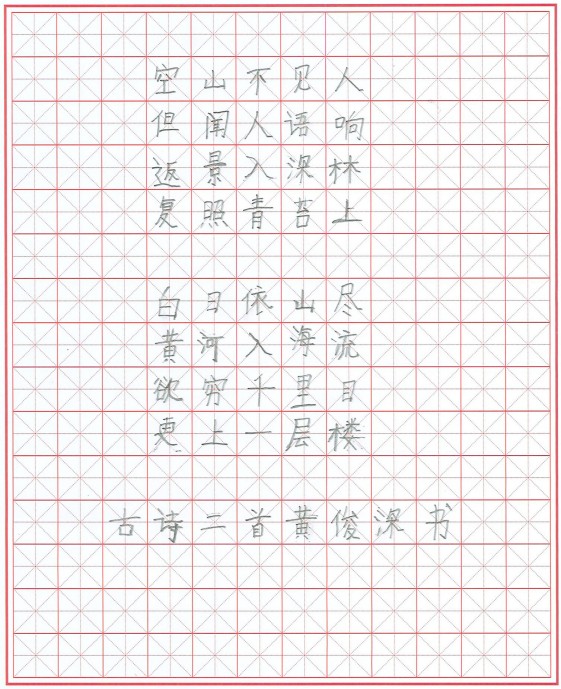 空山不见人
但闻人语响
返景入深林
复照青苔上
白日依山尽
黄河入海流
欲穷千里目
更上一层楼
古诗二首黄俊深书